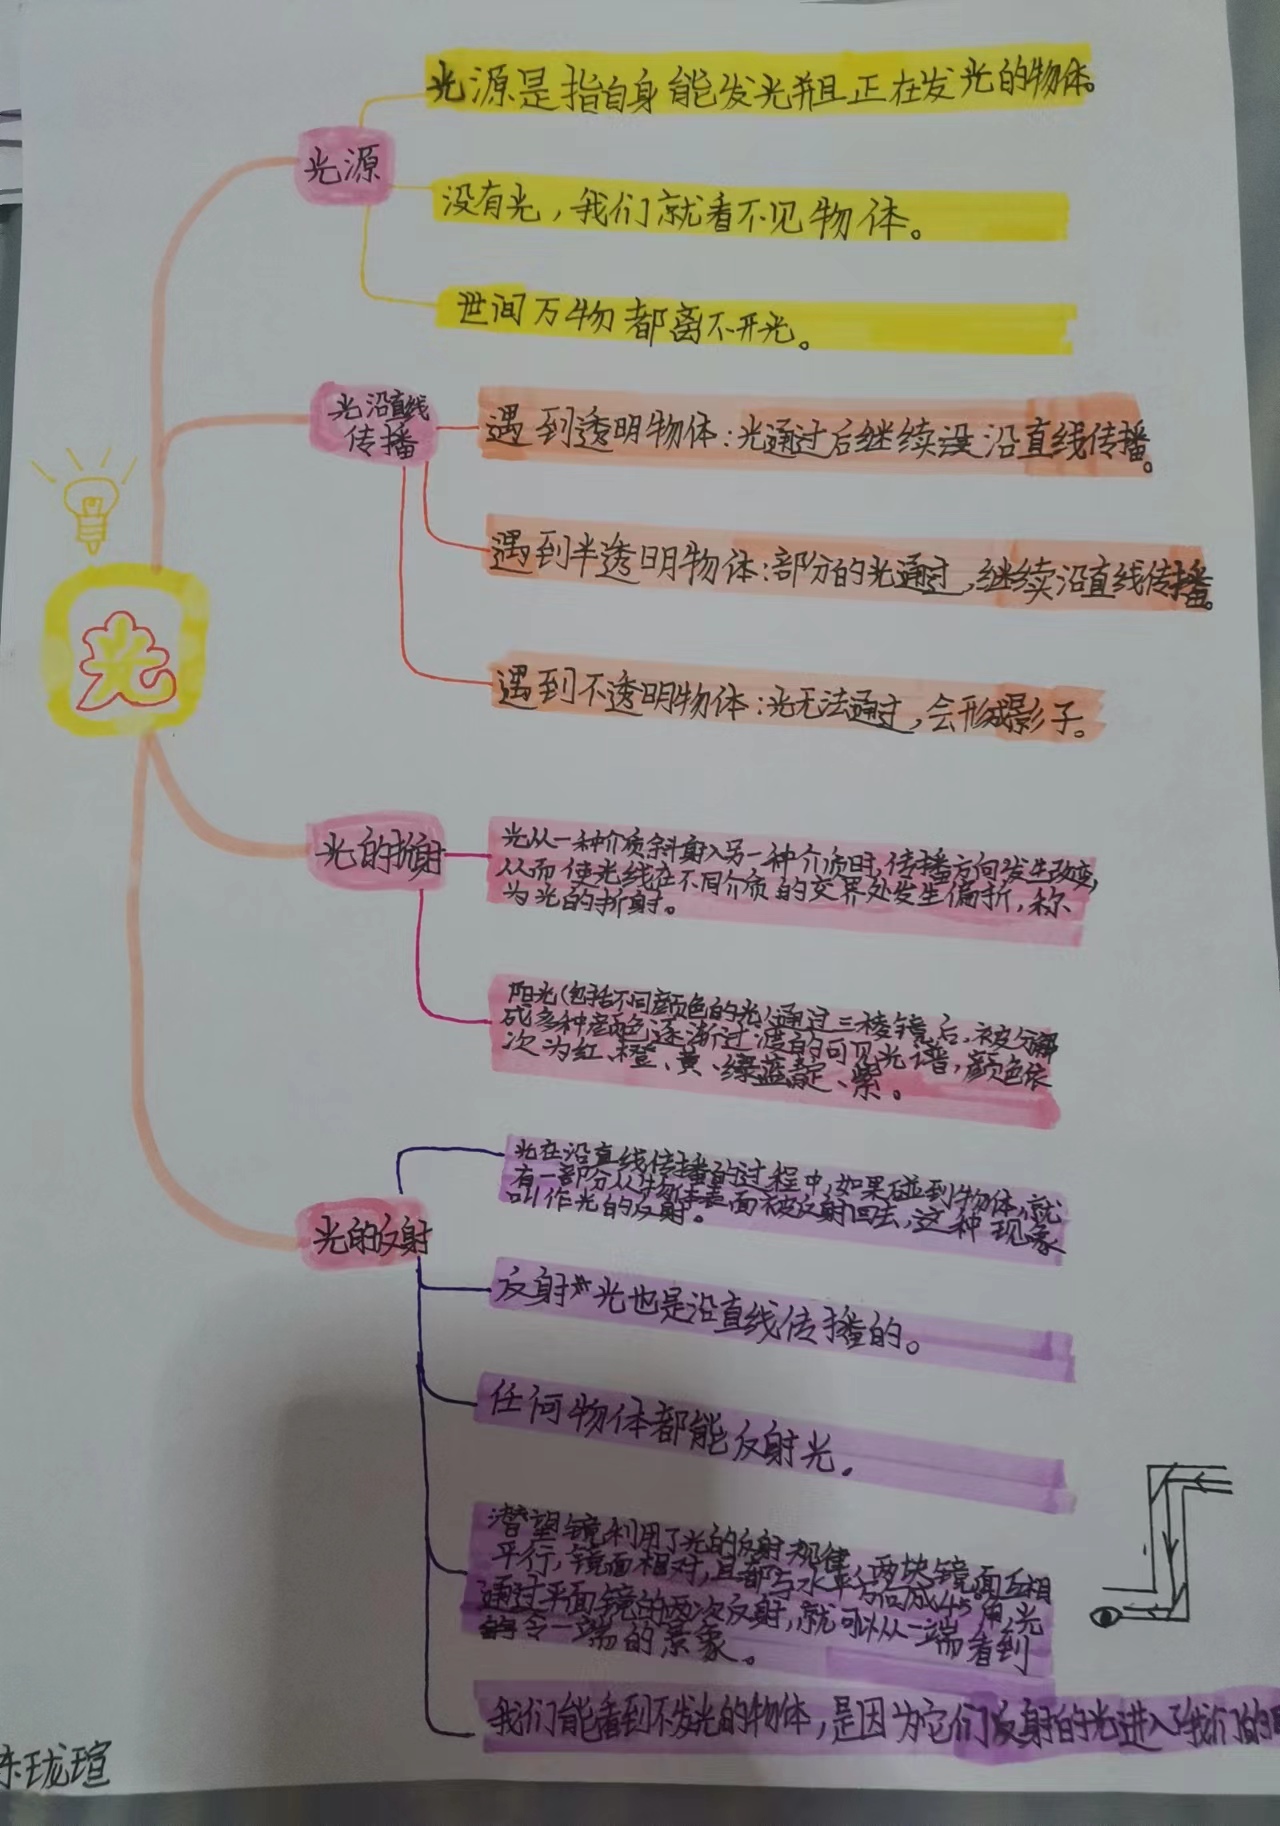 光
光源
光源是指自身能发光并且正在发光的物体。
没有光，我们就看不见物体。
世间万物都离不开光。
光沿直线
传播
遇到透明物体：光通过后继续沿直线传播。
遇到半透明物体：部分的光通过，继续沿直线传播。
遇到不透明物体：光无法通过，会形成影子。
光的折射
光从一种介质斜射入另一种介质时，传播方向发生改变，
从而使光线在不同介质的交界处发生偏折，称
为光的折射。
阳光（包括不同颜色的光）通过三棱镜后，被分解
成多种颜色逐渐过渡的可见光谱，颜色依
次为红、橙、黄、绿蓝靛、紫。
光的反射
光在沿直线传播的过程中，如果碰到物体，就
有一部分从物体表面被反射回去，这种现象
叫作光的反射。
反射光也是沿直线传播的。
任何物体都能反射光。
潜望镜利用了光的反射规律，两块镜面互相
平行，镜面相对，且都与水平方向成45°角，光
通过平面镜的两次反射，就可以从一端看到
令一端的景象。
我们能看到不发光的物体，是因为它们反射的光进入了我们的
珑瑄